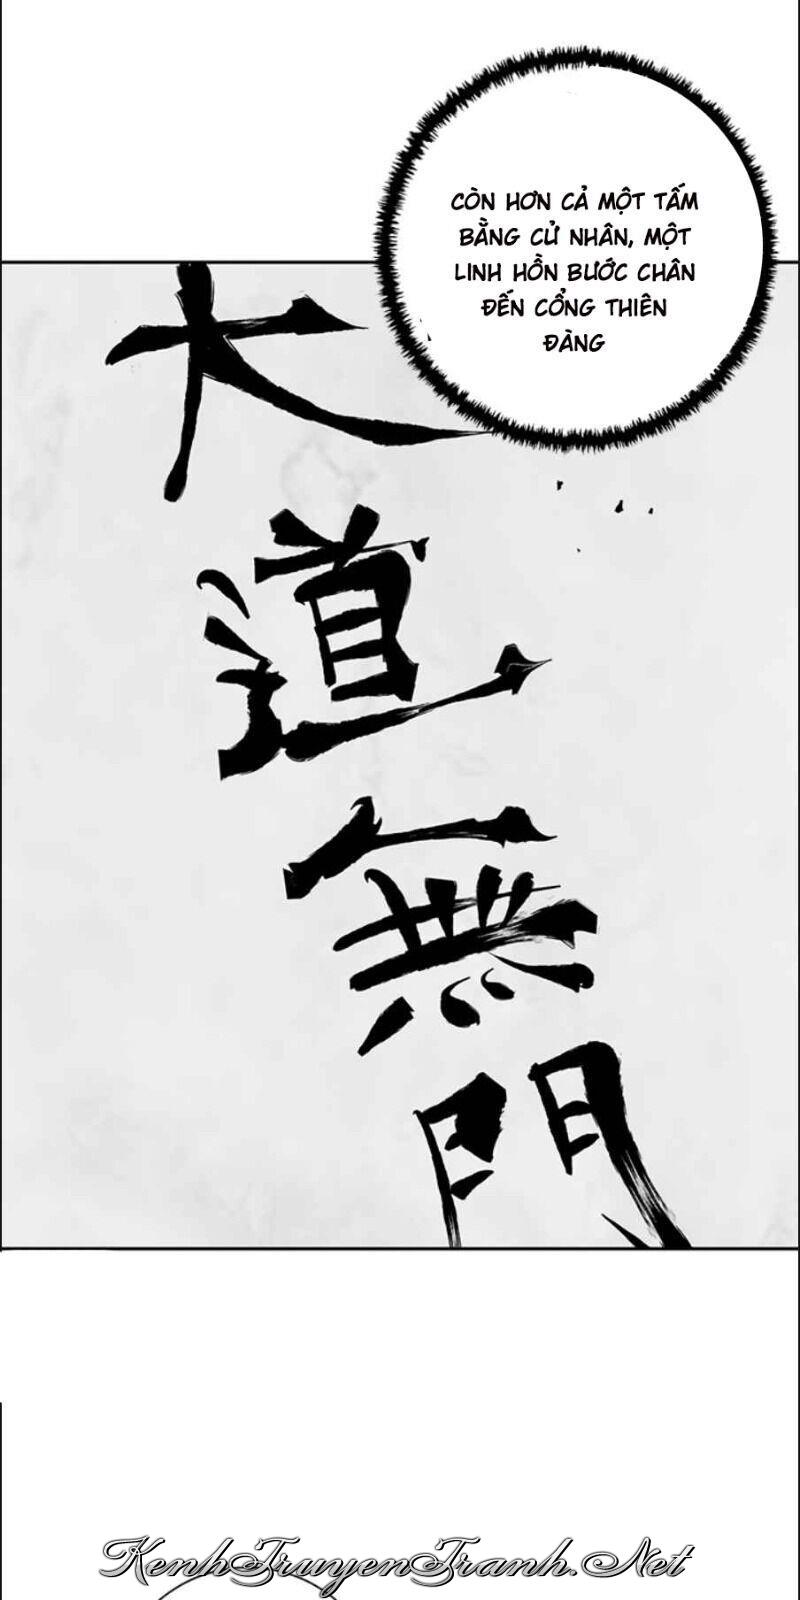 CÒN HƠN CẢ MỘT TẤM
BẰNG CỬ NHÂN, MỘT
LINH HỒN BƯỚC CHÂN
ĐẾN CỔNG THIÊN
ĐÀNG
大
道
無
門
KenhTruyenTranh.Net